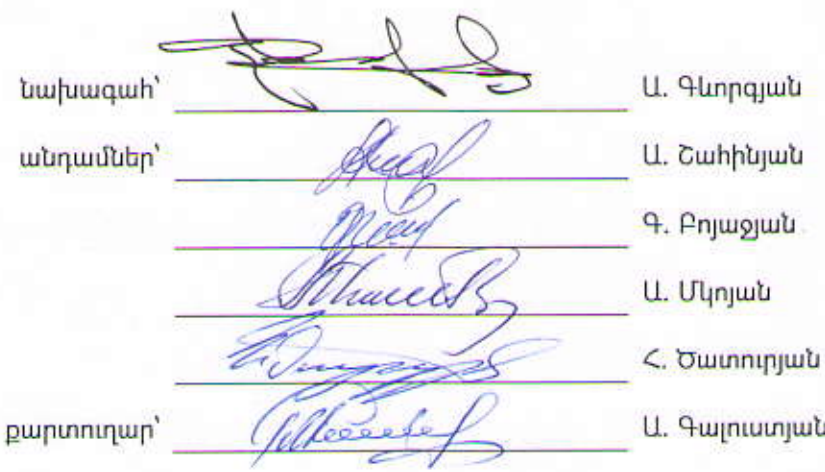 նախագահ՝ Ա. Գևորգյան
անդամներ՝ Ա. Շահինյան
Գ. Բոյաջյան
Ա. Մկոյան
Հ. Ծատուրյան
քարտուղար՝ Ա. Գալուստյան